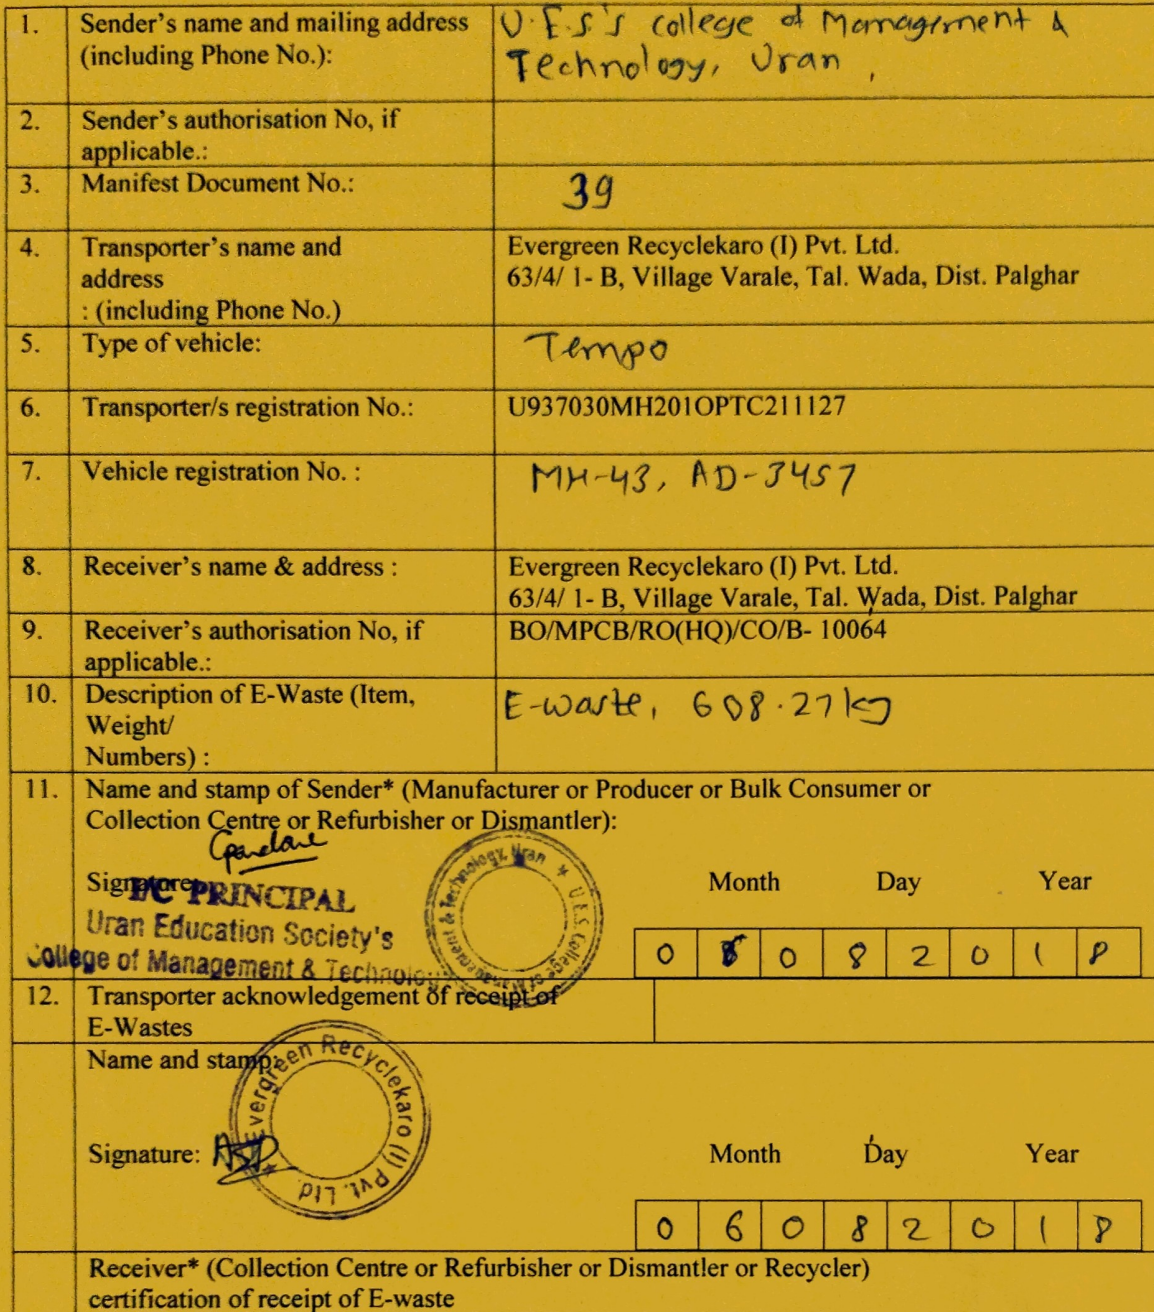 1. Sender's name and mailing address
(including Phone No.):
U.E.S's college of Management &
Technology, Uran,
2. Sender's authorisation No, if
applicable.:
3. Manifest Document No.:
39
4. Transporter's name and
address
: (including Phone No.)
Evergreen Recyclekaro (I) Pvt. Ltd.
63/4/ 1- B, Village Varale, Tal. Wada, Dist. Palghar
5. Type of vehicle:
Tempo
6. Transporter/s registration No.:
U937030MH201OPTC211127
7. Vehicle registration No. :
MH-43, AD-3457
8. Receiver's name & address :
Evergreen Recyclekaro (I) Pvt. Ltd.
63/4/ 1- B, Village Varale, Tal. Wada, Dist. Palghar
9. Receiver's authorisation No, if
applicable.:
BO/MPCB/RO(HQ)/CO/B- 10064
10. Description of E-Waste (Item,
Weight/
Numbers) :
E-waste, 608.27kg
11. Name and stamp of Sender* (Manufacturer or Producer or Bulk Consumer or
Collection Centre or Refurbisher or Dismantler):
Signature:
I/C PRINCIPAL
Uran Education Society's
College of Management & Technology
U.E.S. College of Management & Technology, Uran
Month Day Year
0 0 8 2 0 1 8
12. Transporter acknowledgement of receipt of
E-Wastes
Name and stamp:
Evergreen Recyclekaro (I) Pvt. Ltd.
Signature:
Month Day Year
0 6 0 8 2 0 1 8
Receiver* (Collection Centre or Refurbisher or Dismantler or Recycler)
certification of receipt of E-waste